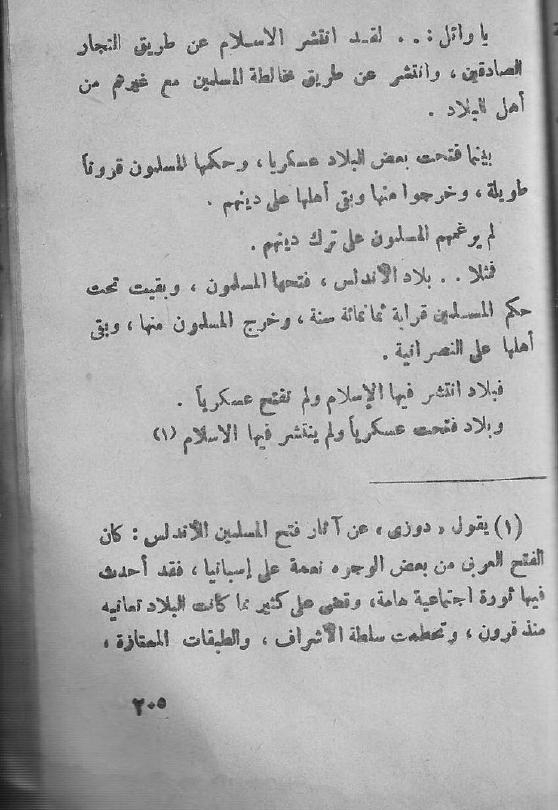 يا وائل : . . لقد انتشر الاسلام عن طريق التجار
الصادقين ، وانتشر عن طريق مخالطة المسلمين مع غيرهم من
أهل البلاد .
بينما فتحت بعض البلاد عسكريا ، وحكمها المسلمون قروناً
طويلة ، وخرجوا منها وبقى أهلها على دينهم .
لم يرغمهم المسلمون على ترك دينهم .
فمثلا . . بلاد الأندلس ، فتحها المسلمون ، وبقيت تحت
حكم المسلمين قرابة ثمانمائة سنة ، وخرج المسلمون منها ، وبقى
أهلها على النصرانية .
فبلاد انتشر فيها الإسلام ولم تفتح عسكرياً .
وبلاد فتحت عسكرياً ولم ينتشر فيها الاسلام (١)
(١) يقول ، دوزى ، عن آثار فتح المسلمين للأندلس : كان
الفتح العربى من بعض الوجوه نعمة على إسبانيا ، فقد أحدث
فيها ثورة اجتماعية هامة ، وقضى على كثير مما كانت البلاد تعانيه
منذ قرون ، وتحطمت سلطة الأشراف ، والطبقات الممتازة ،
٢٠٥